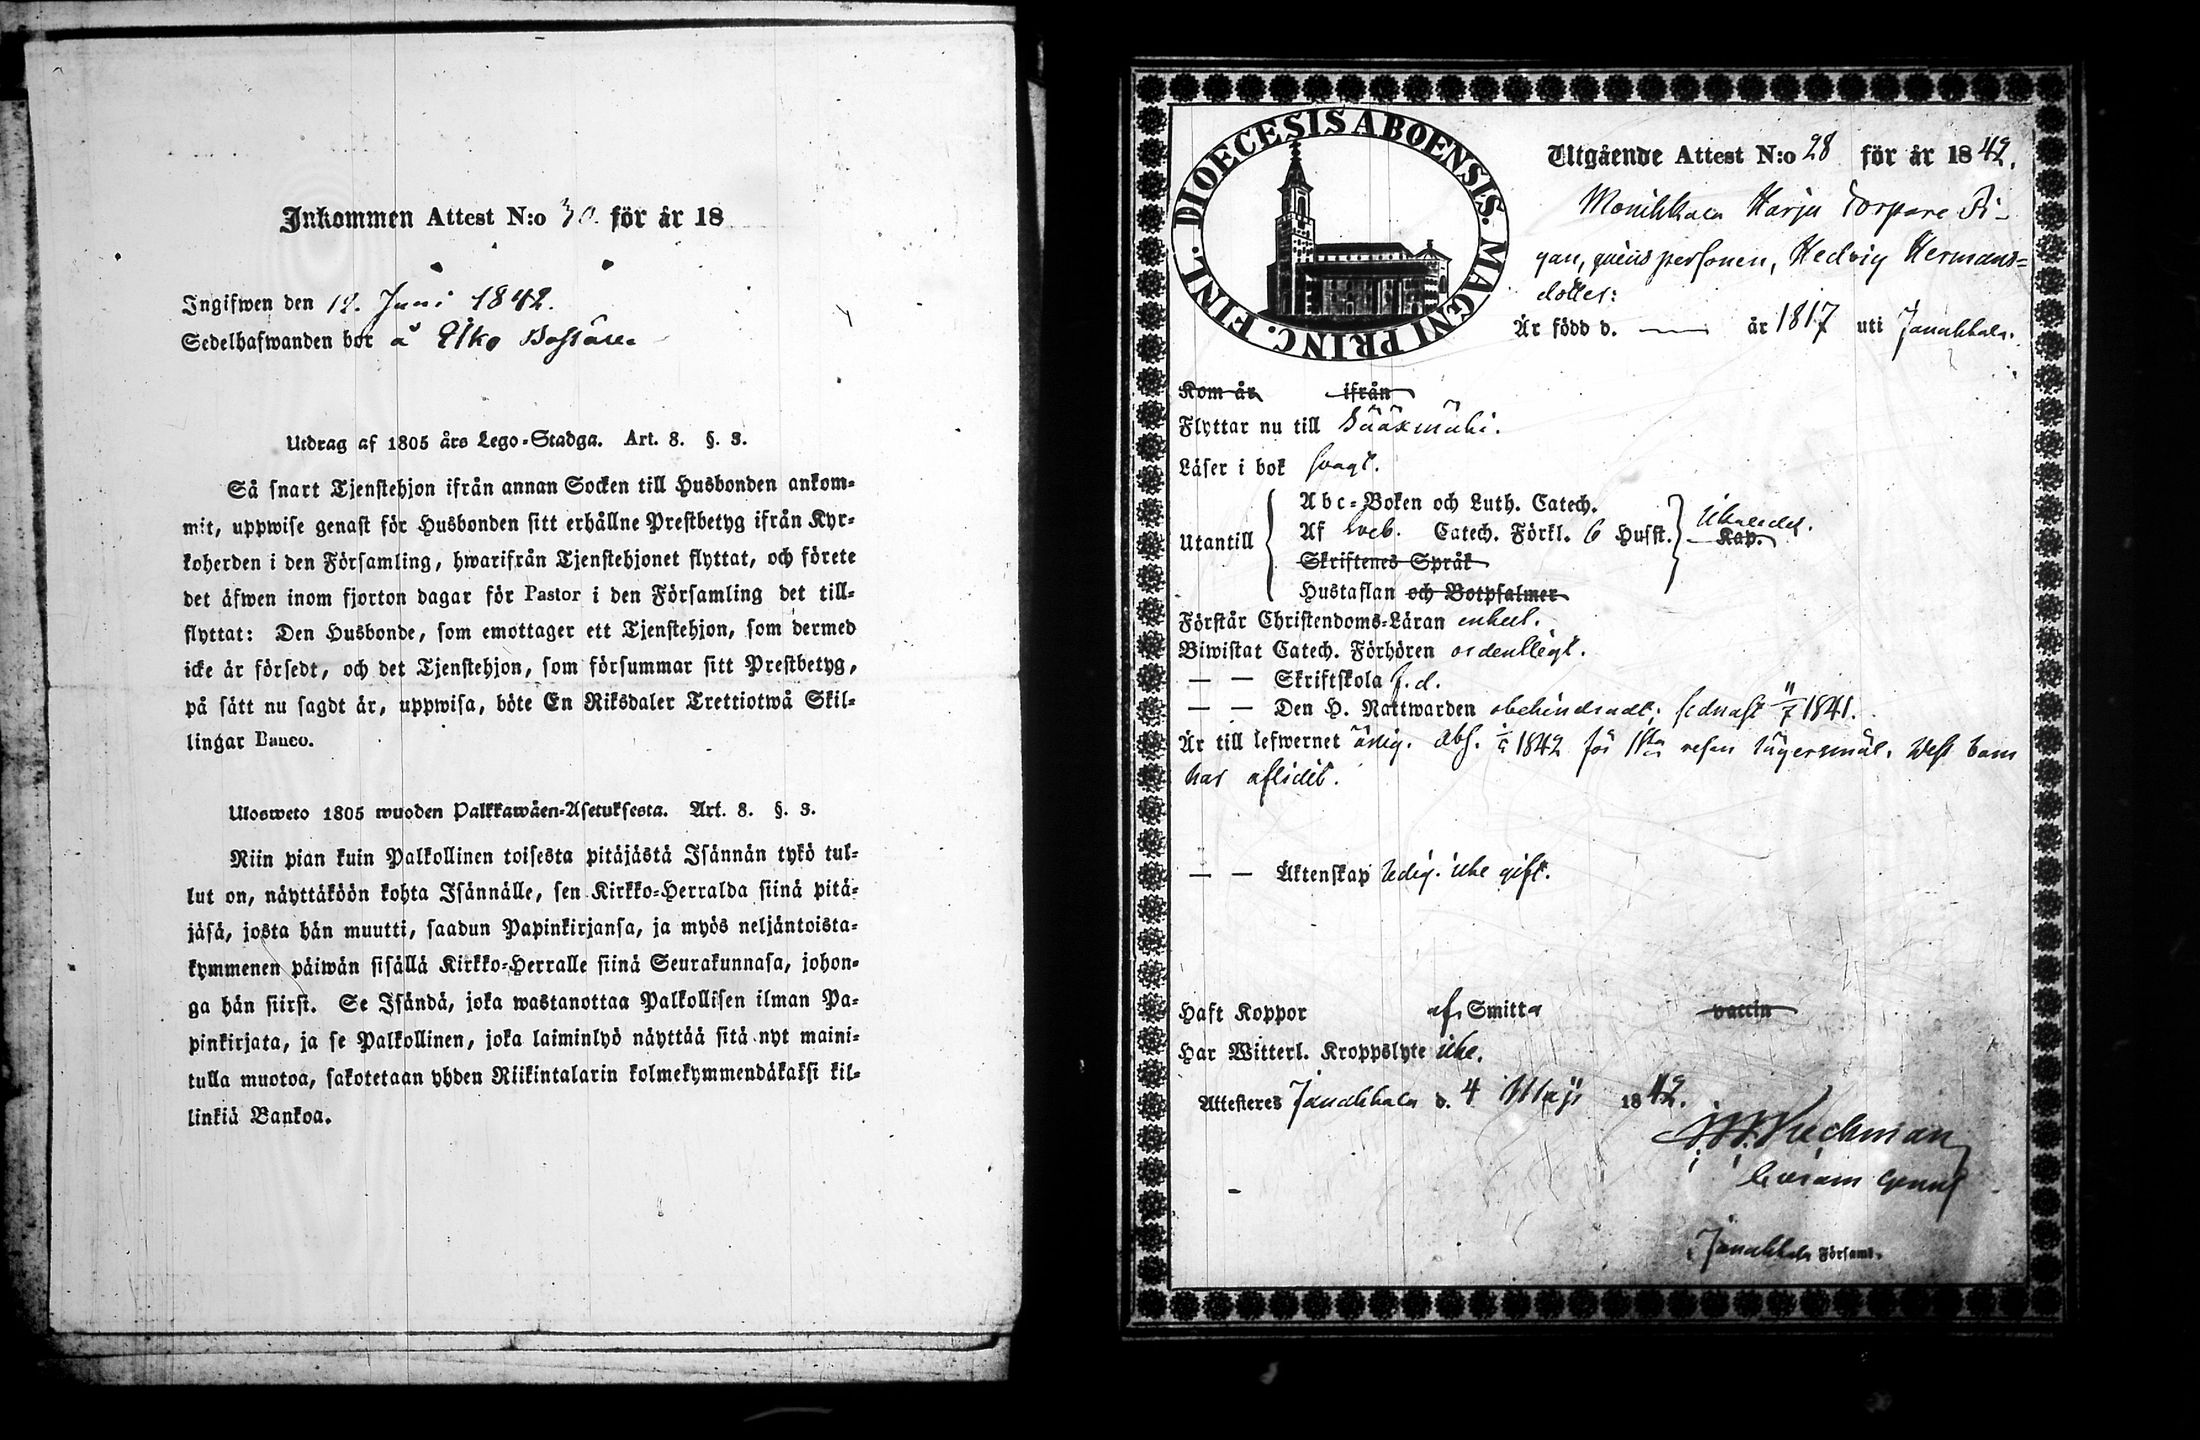 Inkommen Attest N:o 30. för år 18
Ingifwen den 12. Juni 1842.
Sedelhafwanden bor å
Utdrag af 1805 års Lego-Stadga. Art. 8. §. 3.
Så snart Tjenstehjon ifrån annan Socken till Husbonden ankom-
mit, uppwise genast för Husbonden sitt erhållne Prestbetyg ifrån Kyr-
koherden i den Församling, hwarifrån Tjenstehjonet flyttat, och förete
det äfwen inom fjorton dagar för Pastor i den Församling det till-
flyttat: Den Husbonde, som emottager ett Tjenstehjon, som dermed
icke är försedt, och det Tjenstehjon, som försummar sitt Prestbetyg,
på sätt nu sagdt är, uppwisa, böte En Riksdaler Trettiotwå Skil-
lingar Banco.
Ulosweto 1805 wuoden Palkkawäen-Asetuksesta. Art. 8. §. 3.
Niin pian kuin Palkollinen toisesta pitäjästä Isännän tykö tul-
lut on, näyttäköön kohta Isännälle, sen Kirkko-Herralda siinä pitä-
jäsä, josta hän muutti, saadun Papinkirjansa, ja myös neljäntoista-
kymmenen päiwän sisällä Kirkko-Herralle siinä Seurakunnasa, johon-
ga hän siirst. Se Isändä, joka wastanottaa Palkollisen ilman Pa-
pinkirjata, ja se Palkollinen, joka laiminlyö näyttää sitä nyt maini-
tulla muotoa, sakotetaan yhden Riikintalarin kolmekymmendäkaksi kil-
linkiä Bankoa.
DIOECESIS ABOENSIS. MAGNI PRINC. FINL.
Utgående Attest N:o 28 för år 1842.
Monikkala Harju Torpare Pi-
gan, qvinspersonen, Hedvig Hermans-
dotter:
Är född d. — år 1817 uti Janakkala.
Kom år ifrån
Flyttar nu till Sääxmäki.
Läser i bok svagt.
Abc-Boken och Luth. Catech.
Utantill Af Sveb. Catech. Förkl. 6 Hufst. Kap.
Skriftenes Språk
Hustaflan och Botpsalmer
Förstår Christendoms-Läran enkelt.
Biwistat Catech. Förhören ordentligt.
— — Skriftskola f.d.
— — Den H. Nattwarden obehindradt; sednast 11/7 1841.
Är till lefwernet ärlig. Abs. 1842 för 1sta resan lägersmål. Dess barn
har aflidit.
— — Äktenskap ledig. icke gift.
Haft Koppor af Smitta vaccin
Har Witterl. Kroppslyte icke.
Attesteres Janakkala d. 4 Maji 1842.
Janakkala Församl.